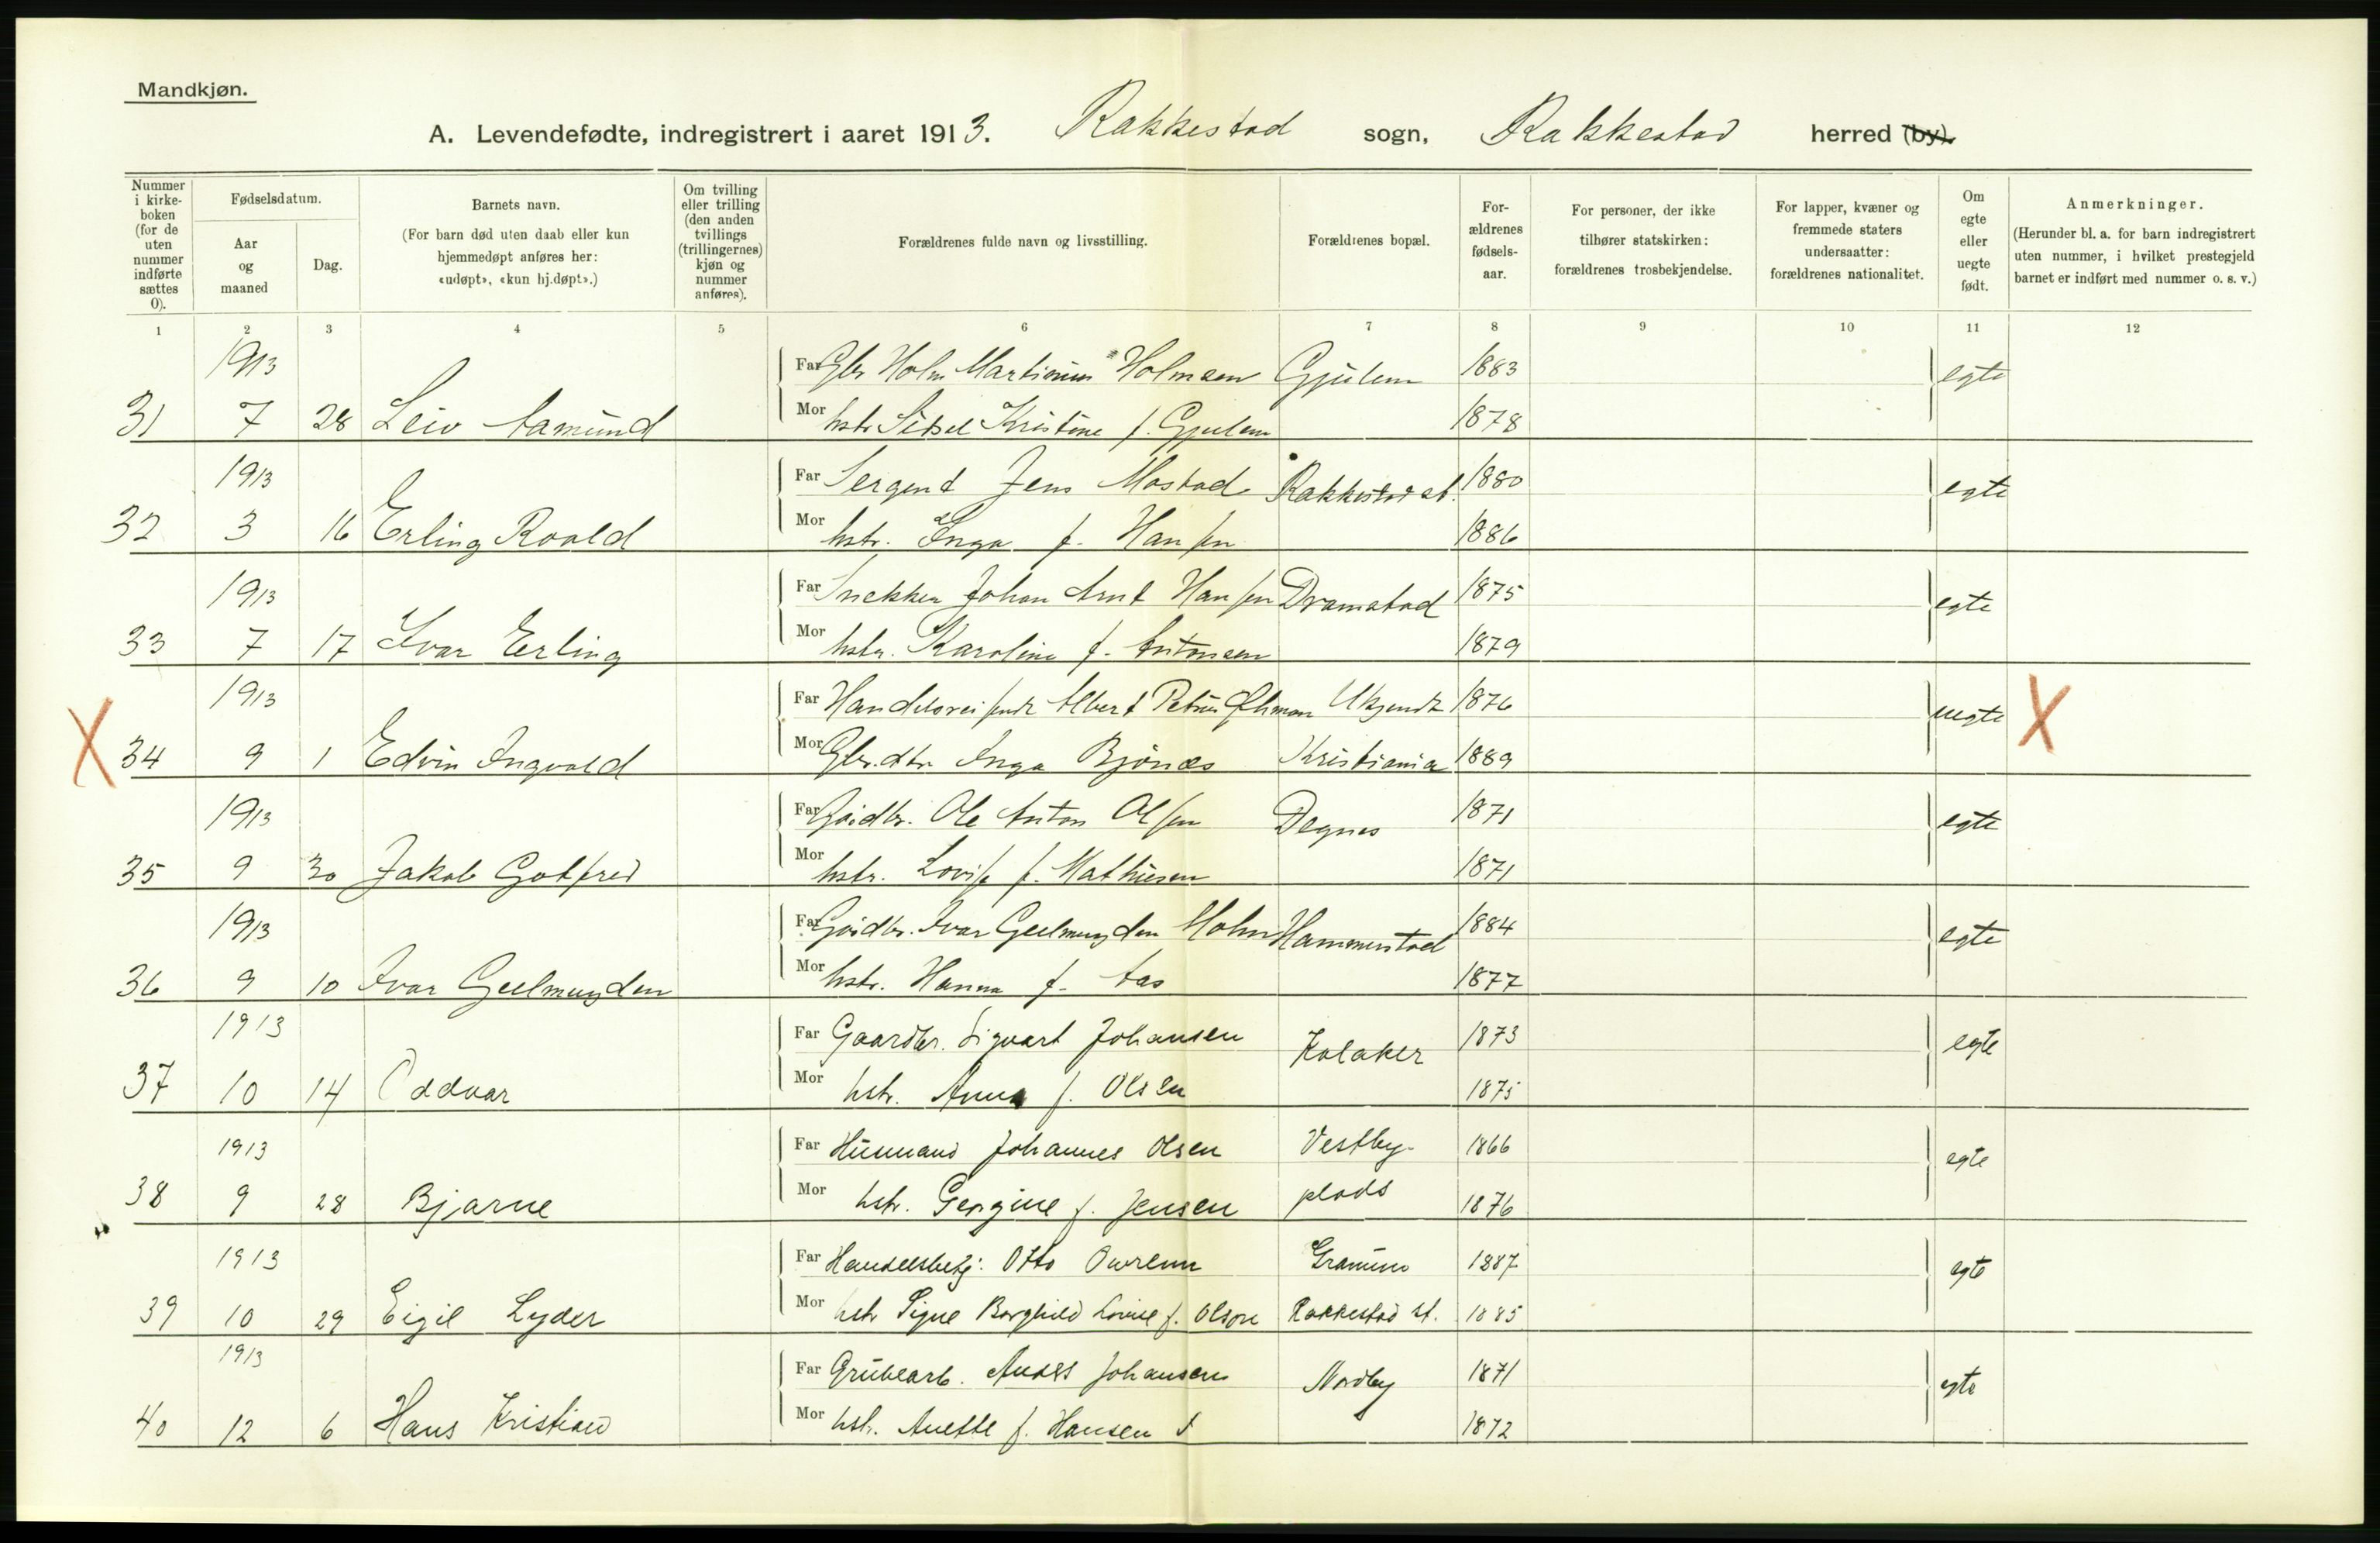 Mandkjøn.
A. Levendefødte, indregistrert i aaret 1913. Rakkestad sogn, Rakkestad herred (by).
Nummer i kirke-boken (for de uten nummer indførte sættes 0).
Fødselsdatum.
Aar og maaned
Dag.
Barnets navn.
(For barn død uten daab eller kun hjemmedøpt anføres her: «udøpt», «kun hj.døpt».)
Om tvilling eller trilling (den anden tvillings (trillingernes) kjøn og nummer anføres).
Forældrenes fulde navn og livsstilling.
Forældrenes bopæl.
For-ældrenes fødsels-aar.
For personer, der ikke tilhører statskirken: forældrenes trosbekjendelse.
For lapper, kvæner og fremmede staters undersaatter: forældrenes nationalitet.
Om egte eller uegte født.
Anmerkninger.
(Herunder bl. a. for barn indregistrert uten nummer, i hvilket prestegjeld barnet er indført med nummer o. s. v.)
1 2 3 4 5 6 7 8 9 10 11 12
1913 Far Gbr Holm Martinius Holmsen Gjulem 1883 egte
31 7 28 Leiv Aamund Mor hstr Sidsel Kristine f. Gjulem 1878
1913 Far Sergent Jens Mostad Rakkestad st. 1880 egte
32 3 16 Erling Roald Mor hstr. Inga f. Hansen 1886
1913 Far Snekker Johan Arnt Hansen Dramstad 1875 egte
33 7 17 Ivar Erling Mor hstr. Karoline f. Antonsen 1879
1913 Far Handelsreisende Albert Petrus Øhman Ukjendt 1876 uegte X
X 34 9 1 Edvin Ingvald Mor Gbr.dtr Inga Bjønæs Kristiania 1889
1913 Far Gårdbr. Ole Anton Olsen Degnes 1871 egte
35 9 30 Jakob Gotfred Mor hstr. Lovise f. Mathiesen 1871
1913 Far Gårdbr. Ivar Geelmuyden Holm Hammerstad 1884 egte
36 9 10 Ivar Geelmuyden Mor hstr. Hanna f. Aas 1877
1913 Far Gaardbr. Sigvart Johansen Kolaker 1873 egte
37 10 14 Oddvar Mor hstr. Anna f. Olsen 1875
1913 Far Husmand Johannes Olsen Vestby- 1866 egte
38 9 28 Bjarne Mor hstr. Georgine f. Jensen plads 1876
1913 Far Handelsbetj. Otto 1887 egte
39 10 29 Eigil Lyder Mor hstr Signe Borghild Lovise f. Olsen Rakkestad st. 1885
1913 Far Grubearb. Anders Johansen Nordby 1871 egte
40 12 6 Hans Kristian Mor hstr. Anette f. Hansen 1872